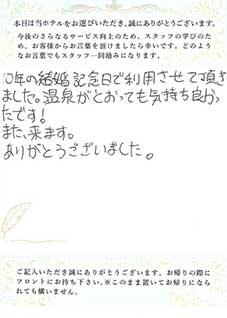 本日は当ホテルをお選びいただき、誠にありがとうございます。
今後のさらなるサービス向上のため、スタッフの学びのた
め、お客様からお言葉を頂けましたら幸いです。どのよ
うなお言葉でもスタッフ一同励みになります。
10年の結婚記念日で利用させて頂き
ました。温泉がとおっても気持ち良かっ
たです!
また、来ます。
ありがとうございました。
ご記入いただき誠にありがとうございます。お帰りの際に
フロントにお持ち下さい。※このまま置いてお帰りになら
れても構いません。